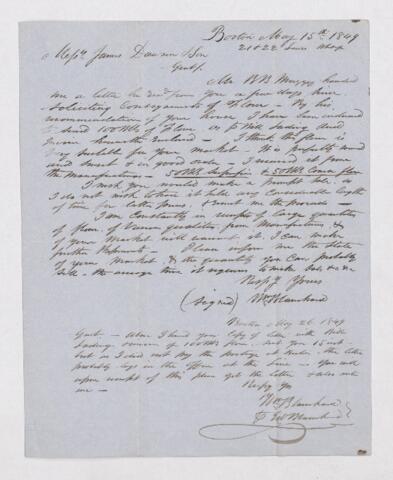 Boston May 15th 1849
21 & 22 Wharf
Messrs James Dawson & Son
Gents.
Mr B B Muzzy handed
me a letter he recd from you a few days since
soliciting Consignments of Flour - By his
recommendation of your house I have been induced
to send 100 Bbls of Flour as pr Bill Lading and
Invoice herewith Enclosed - I think this flour is
very suitable for your market - It is perfectly sound
and sweet & in good order - I received it from
the Manufacturers - 50 Bbls Superfine & 50 Bbls Common flour
I wish you would make a prompt sale, as
I do not wish to have it lay any Considerable length
of time for better prices, & remit me the proceeds -
I am Constantly in receipt of large quantities
of flour, of Various qualities, from Manufacturers, &
if your Market will warrant it, I can make
further Shipments. Please inform me the state
of your Market, & the quantity you can probably
sell - the average time it requires to make sales &c &c
Respy Yours
(Signed) Wm Blanchard
Boston May 26 1849
Gents - Above I hand you Copy of letter with Bill
Lading & invoice of 100 Bbls flour sent you 15 inst
but as I did not pay the postage at Boston, the letter
probably lays in the office at the Line - You will
upon receipt of this please get the letter & advise with
me -
Respy Yrs
Wm Blanchard
Blanchard